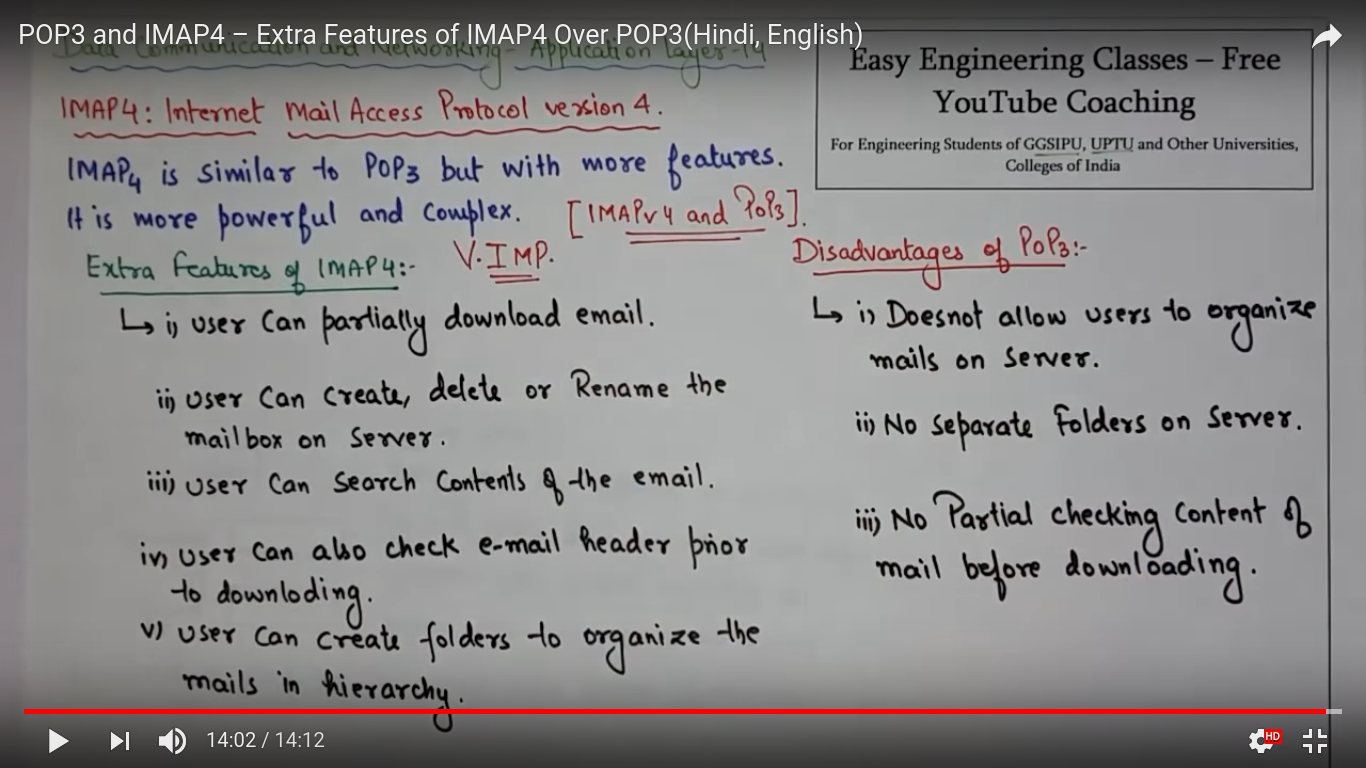 POP3 and IMAP4 – Extra Features of IMAP4 Over POP3(Hindi, English)
Data Communication and Networking - Application Layer-14
Easy Engineering Classes – Free
YouTube Coaching
For Engineering Students of GGSIPU, UPTU and Other Universities,
Colleges of India
IMAP4: Internet Mail Access Protocol version 4.
IMAP4 is similar to POP3 but with more features.
It is more powerful and complex. [IMAPv4 and POP3].
Extra features of IMAP4:- V.IMP.
↳ i) user can partially download email.
ii) user can create, delete or Rename the
mailbox on server.
iii) user can search contents of the email.
iv) user can also check e-mail header prior
to downloding.
v) user can create folders to organize the
mails in hierarchy.
Disadvantages of POP3:-
↳ i) Doesnot allow users to organize
mails on server.
ii) No separate folders on server.
iii) No Partial checking content of
mail before downloading.
14:02 / 14:12
HD